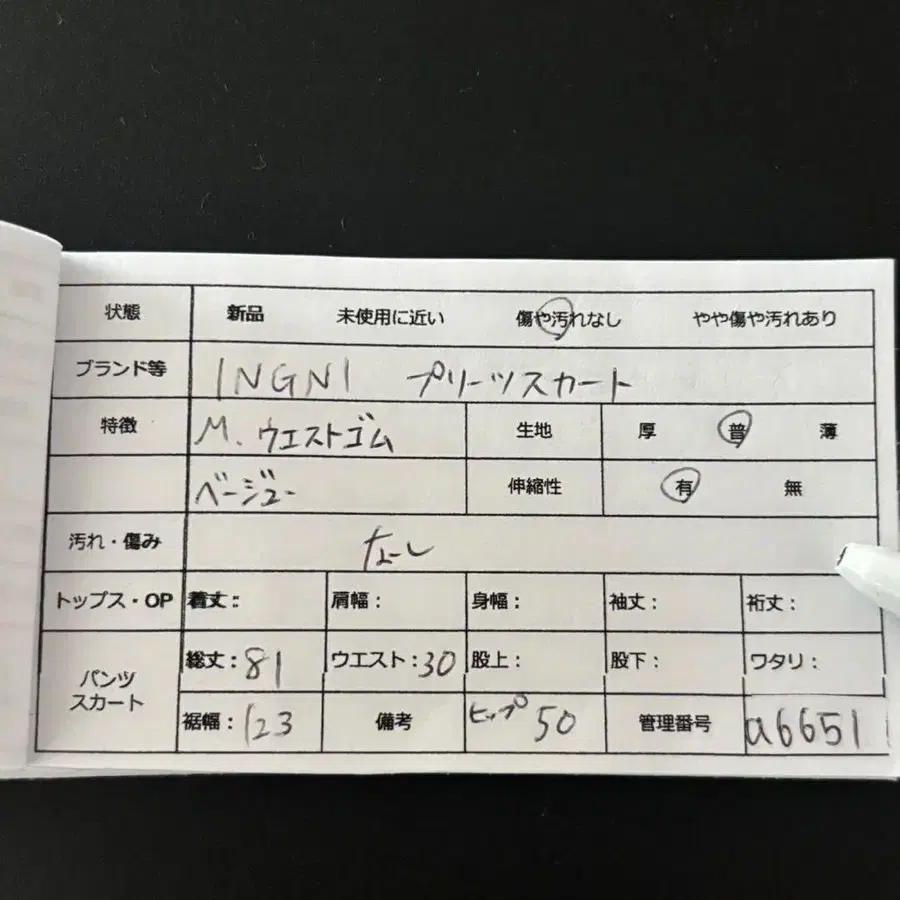 状態 新品 未使用に近い 傷や汚れなし やや傷や汚れあり
ブランド等 INGNI プリーツスカート
特徴 M. ウエストゴム 生地 厚 普 薄
ベージュー 伸縮性 有 無
汚れ・傷み なし
トップス・OP 着丈: 肩幅: 身幅: 袖丈: 裄丈:
パンツ スカート 総丈:81 ウエスト:30 股上: 股下: ワタリ:
裾幅:123 備考 ヒップ 50 管理番号 a6651